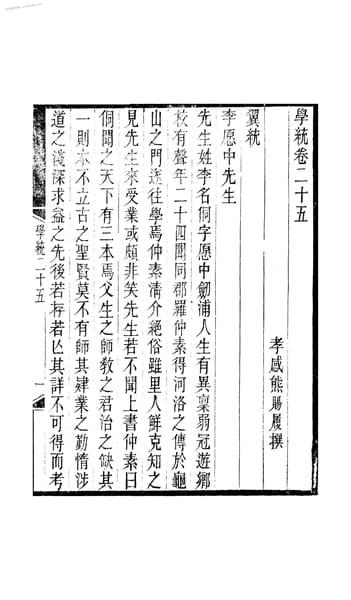 學統卷二十五
孝感熊賜履撰
翼統
李愿中先生
先生姓李名侗字愿中劒浦人生有異稟弱冠遊鄉
校有聲年二十四聞同郡羅仲素得河洛之傳於龜
山之門遂往學焉仲素清介絕俗雖里人鮮克知之
見先生來受業或頗非笑先生若不聞上書仲素曰
侗聞之天下有三本焉父生之師敎之君治之缺其
一則本不立古之聖賢莫不有師其肄業之勤惰涉
道之淺深求益之先後若存若亾其詳不可得而考
學統二十五
一